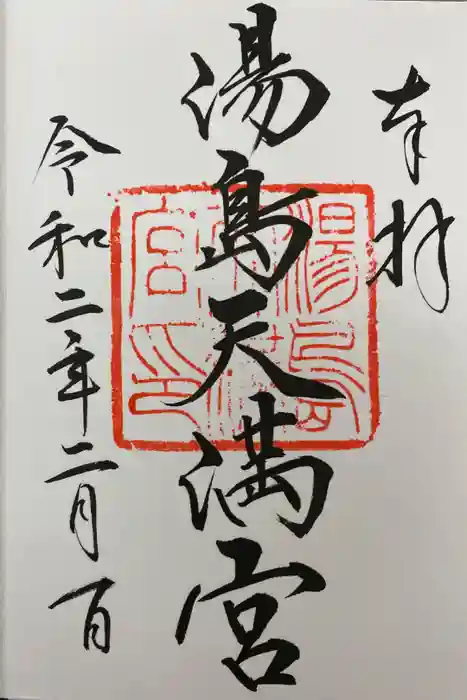 奉拝
湯島天満宮
令和二年二月一日
湯島
宮印